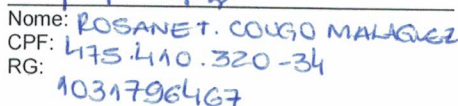 Nome: ROSANE T. COUGO MALAGUEZ
CPF: 475.410.320-34
RG:
1031796467